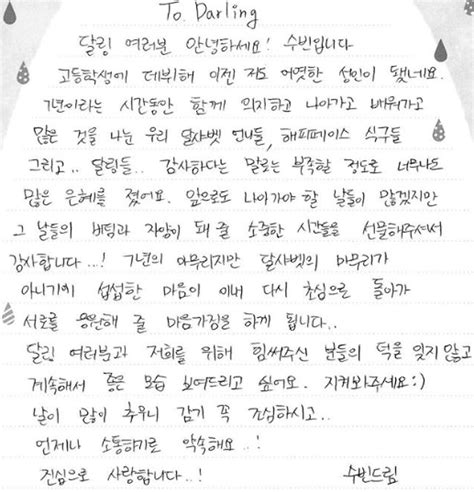 To. Darling
달링 여러분 안녕하세요! 수빈입니다
고등학생에 데뷔해 이젠 저도 어엿한 성인이 됐네요.
7년이라는 시간동안 함께 의지하고 나아가고 배워가고
많은 것을 나눈 우리 달샤벳 언니들, 해피페이스 식구들
그리고.. 달링들.. 감사하다는 말로는 부족할 정도로 너무나도
많은 은혜를 졌어요. 앞으로도 나아가야 할 날들이 많겠지만
그 날들의 버팀과 자양이 돼 줄 소중한 시간들을 선물해주셔서
감사합니다..! 7년의 마무리지만 달샤벳의 마무리가
아니기에 섭섭한 마음이 이내 다시 초심으로 돌아가
서로를 응원해 줄 마음가짐을 하게 됩니다..
달링 여러분과 저희를 위해 힘써주신 분들의 덕을 잊지 않고
계속해서 좋은 모습 보여드리고 싶어요. 지켜봐주세요:)
날이 많이 추우니 감기 꼭 조심하시고..
언제나 소통하기로 약속해요..!
진심으로 사랑합니다..! 수빈드림